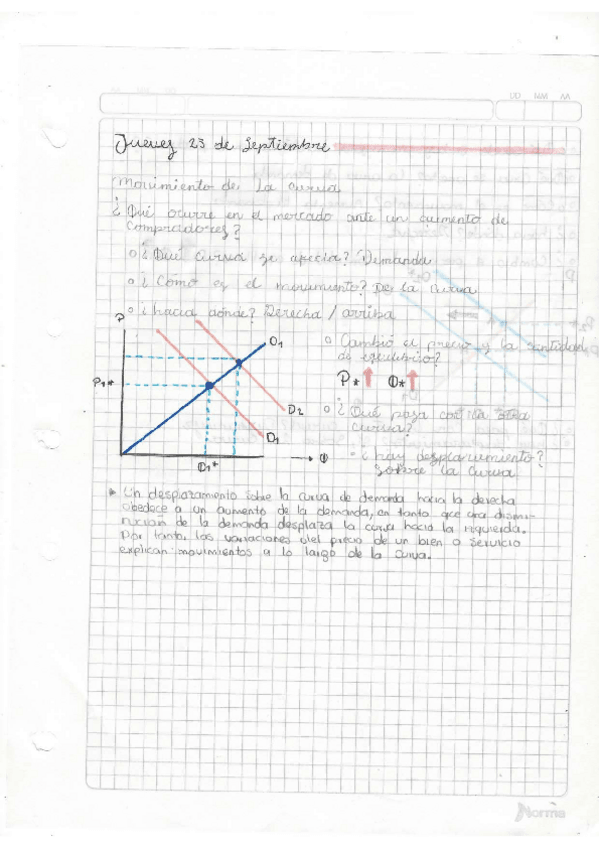 Jueves 23 de Septiembre
Movimiento de la curva
¿Qué ocurre en el mercado ante un aumento de
compradores?
¿Qué curva se afecta? Demanda
¿Cómo es el movimiento? De la curva
¿hacia dónde? Derecha / arriba
P
O1
P1*
D2
D1
Q1*
Q
Cambió el precio y la cantidad
de equilibrio?
P* ↑ Q* ↑
¿Qué pasa con la otra
curva?
¿hay desplazamiento?
Sobre la curva
Un desplazamiento sobre la curva de demanda hacia la derecha
obedece a un aumento de la demanda, en tanto que una dismi-
nución de la demanda desplaza la curva hacia la izquierda.
Por tanto, las variaciones del precio de un bien o servicio
explican movimientos a lo largo de la curva.
Norma